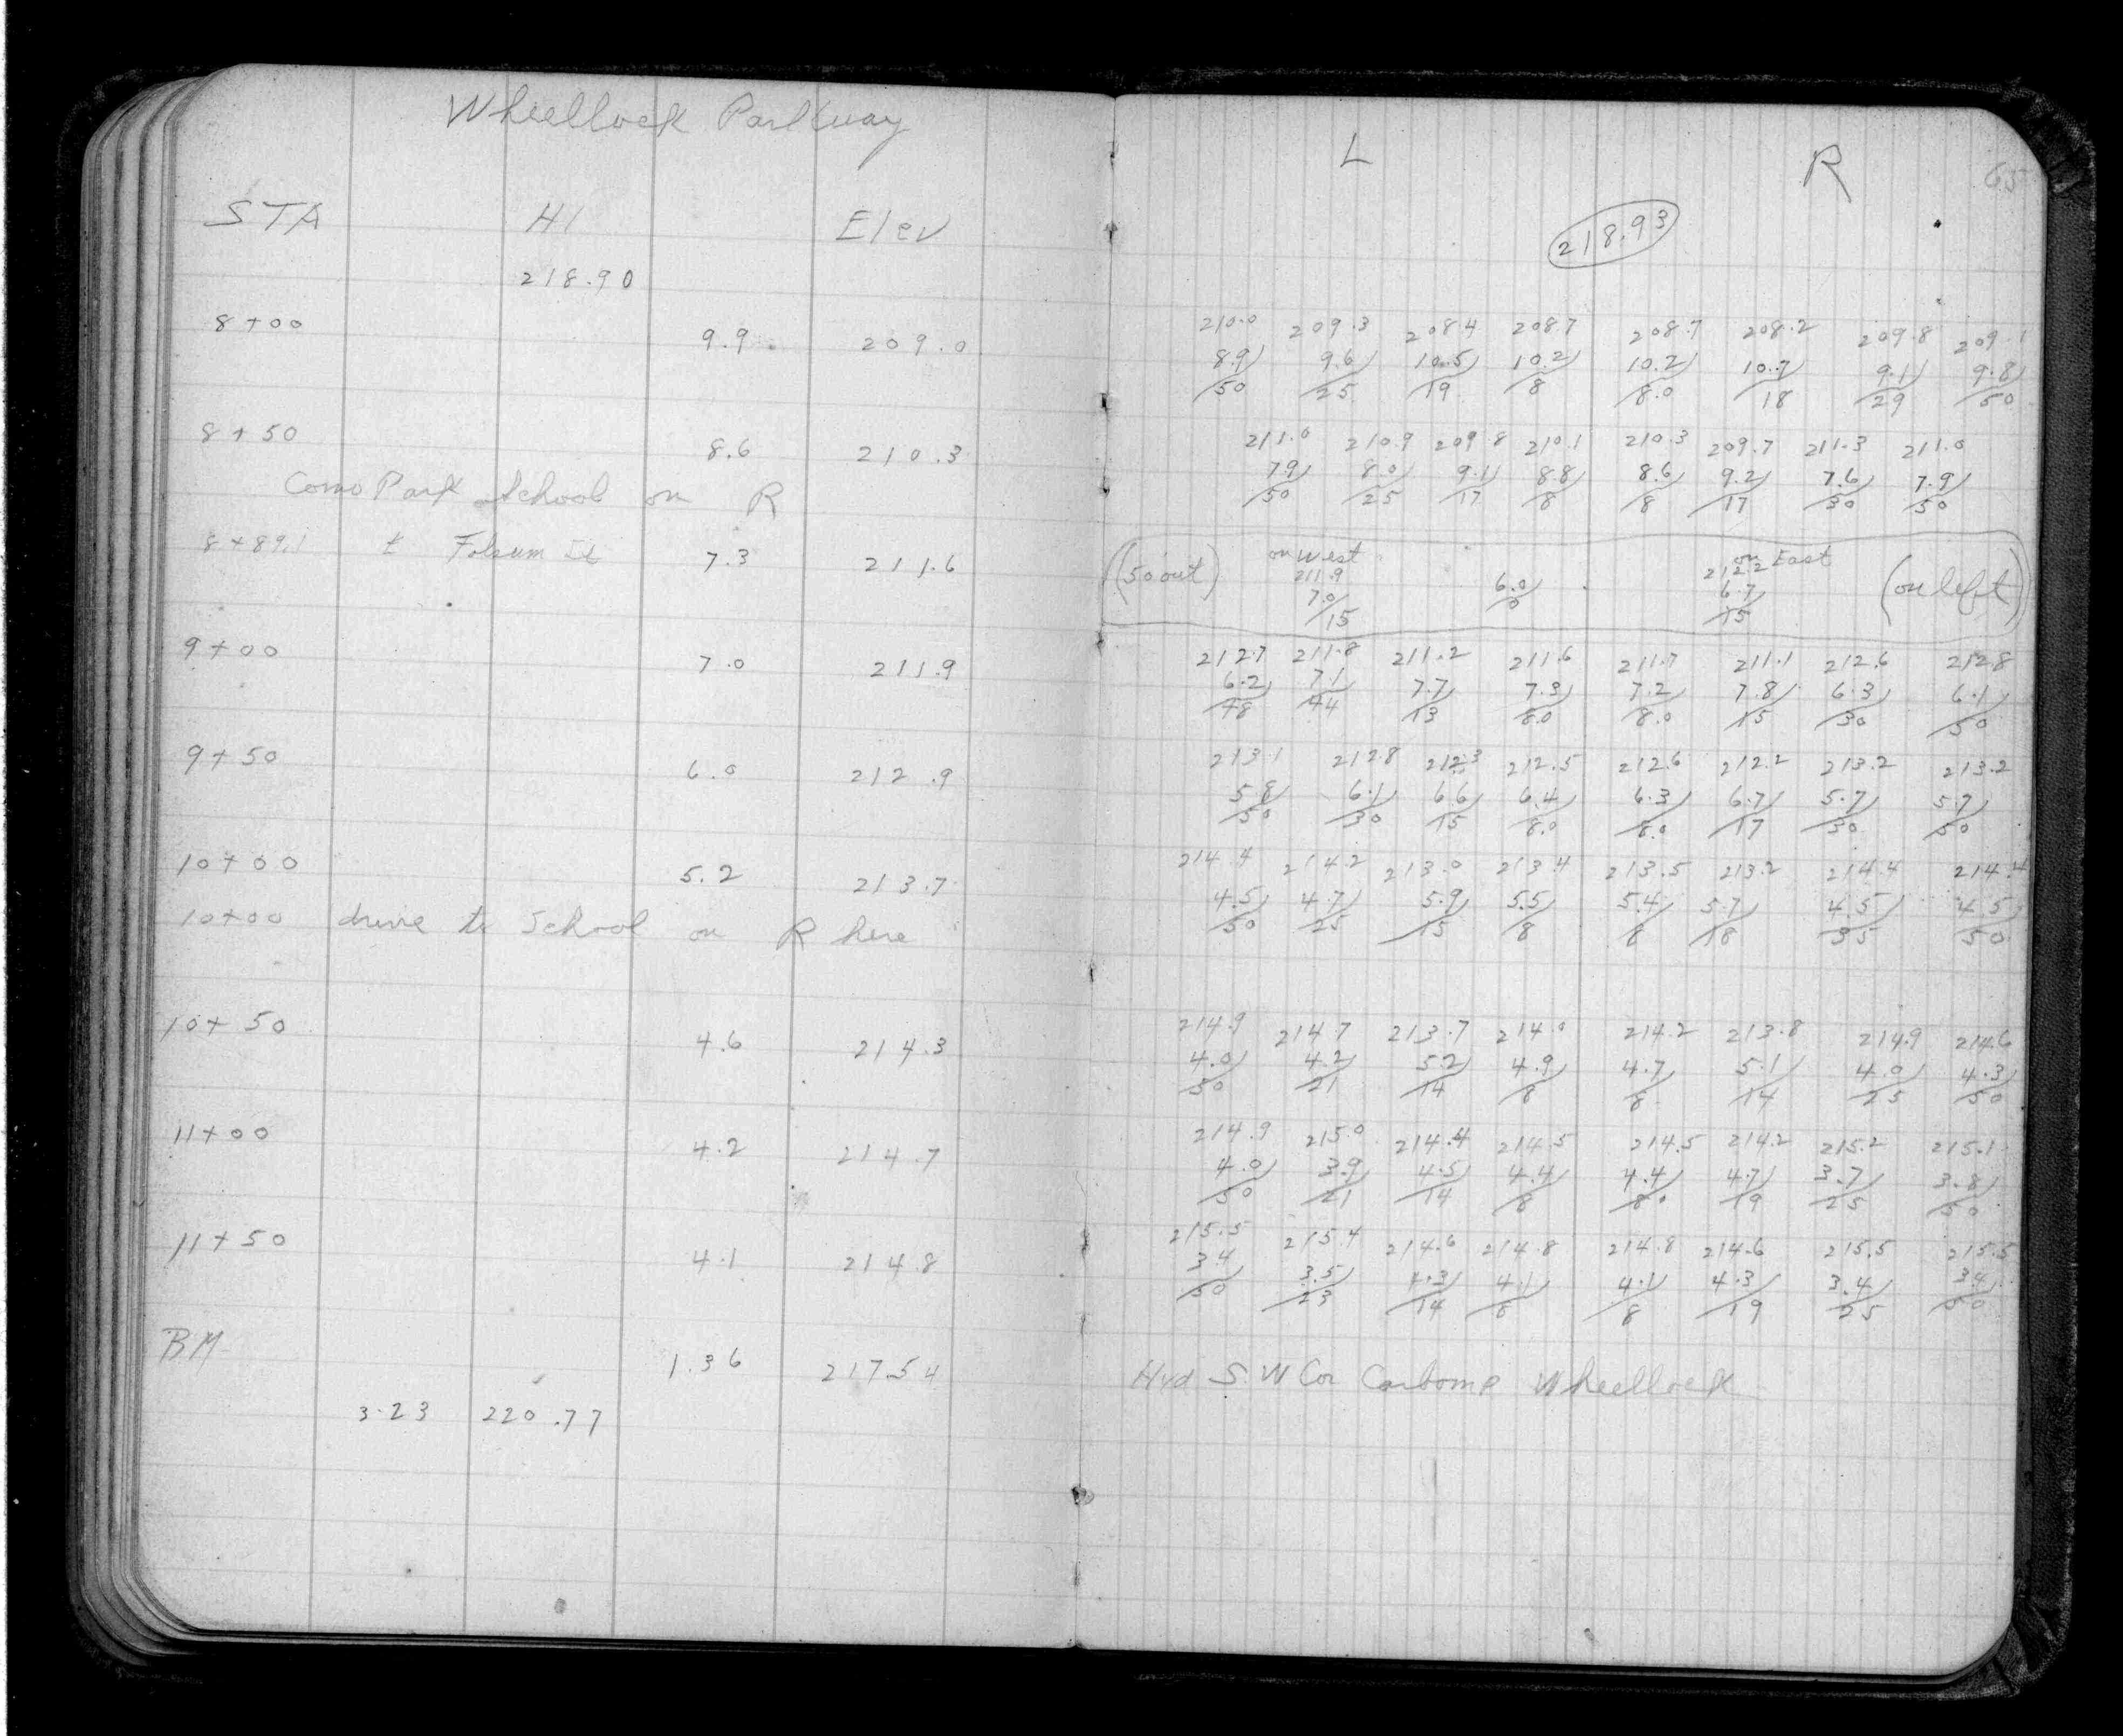 Wheellock Parkway
STA HI Elev
218.90
8+00 9.9 209.0
8+50 8.6 210.3
Como Park School on R
8+89.1 ℄ Folsum St 7.3 211.6
9+00 7.0 211.9
9+50 6.0 212.9
10+00 5.2 213.7
10+00 drive to School on R here
10+50 4.6 214.3
11+00 4.2 214.7
11+50 4.1 214.8
BM 1.36 217.54
3.23 220.77
L R 65
218.93
210.0 209.3 208.4 208.7 208.7 208.2 209.8 209.1
8.9 9.6 10.5 10.2 10.2 10.7 9.1 9.8
50 25 19 8 8.0 18 29 50
211.0 210.9 209.8 210.1 210.3 209.7 211.3 211.0
7.9 8.0 9.1 8.8 8.6 9.2 7.6 7.9
50 25 17 8 8 17 30 50
(50 out) on West on East (on left)
211.9 6.0 212.2
7.0 0 6.7
15 15
212.7 211.8 211.2 211.6 211.7 211.1 212.6 212.8
6.2 7.1 7.7 7.3 7.2 7.8 6.3 6.1
48 44 13 8.0 8.0 15 30 50
213.1 212.8 212.3 212.5 212.6 212.2 213.2 213.2
5.8 6.1 6.6 6.4 6.3 6.7 5.7 5.7
50 30 15 8.0 8.0 17 30 50
214.4 214.2 213.0 213.4 213.5 213.2 214.4 214.4
4.5 4.7 5.9 5.5 5.4 5.7 4.5 4.5
50 25 15 8 8 18 35 50
214.9 214.7 213.7 214.0 214.2 213.8 214.9 214.6
4.0 4.2 5.2 4.9 4.7 5.1 4.0 4.3
50 21 14 8 8 14 25 50
214.9 215.0 214.4 214.5 214.5 214.2 215.2 215.1
4.0 3.9 4.5 4.4 4.4 4.7 3.7 3.8
50 21 14 8 8.0 19 25 50
215.5 215.4 214.6 214.8 214.8 214.6 215.5 215.5
3.4 3.5 4.3 4.1 4.1 4.3 3.4 3.4
50 23 14 8 8 19 25 50
Hyd S.W Cor Carbome Wheellock